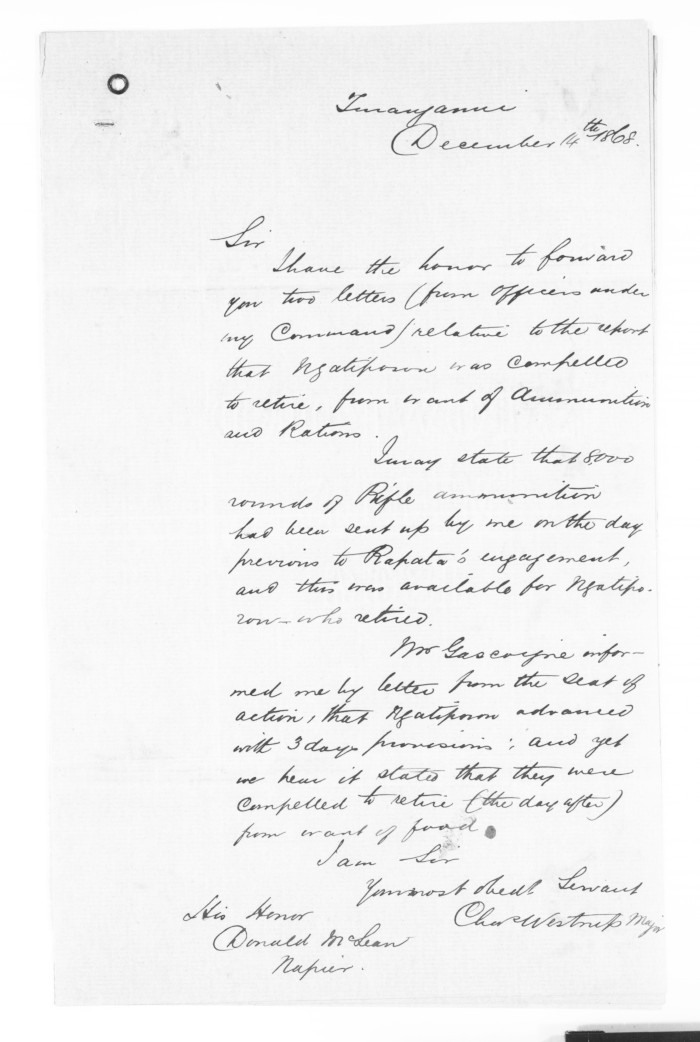 Turanganui
December 14th 1868.
Sir
I have the honor to forward
you two letters (from Officers under
my Command) relative to the report
that Ngatiporou was compelled
to retire, from want of Ammunition
and Rations.
I may state that 8,000
rounds of Rifle ammunition
had been sent up by me on the day
previous to Rapata's engagement,
and this was available for Ngatipo-
rou – who retired.
Mr Gascoigne infor-
med me by letter from the seat of
action, that Ngatiporou advanced
with 3 days provisions; and yet
we hear it stated that they were
compelled to retire (the day after)
from want of food
I am Sir
Your most obedt Servant
Chas Westrup Major
His Honor
Donald McLean
Napier.